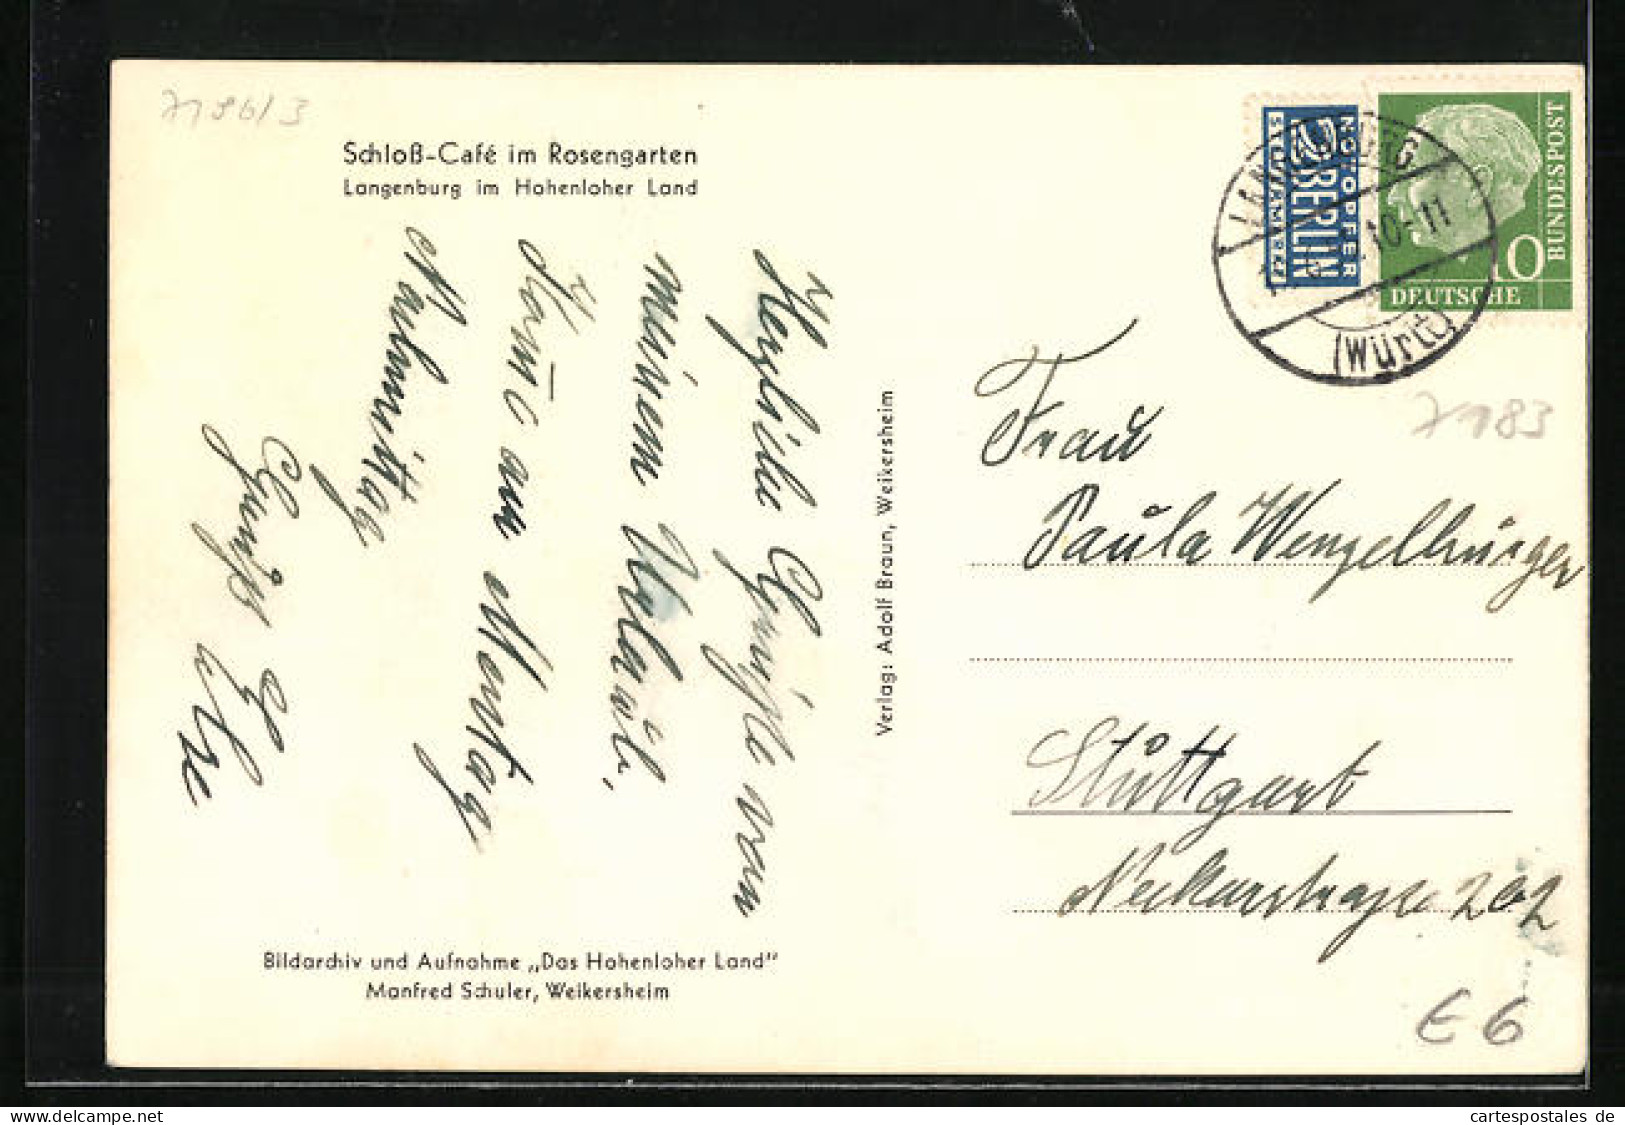 7196/3
Schloß-Café im Rosengarten
Langenburg im Hohenloher Land
Herzliche Grüße von
meinem Urlaub.
Komme am Montag
Nachmittag
Gruß
Else
Bildarchiv und Aufnahme „Das Hohenloher Land"
Manfred Schuler, Weikersheim
Verlag: Adolf Braun, Weikersheim
NOTOPFER
2 BERLIN
STEUERMARKE
10
DEUTSCHE
BUNDESPOST
LANGENBURG
10-11
(Württ)
7183
Frau
Paula Wengelburger
Stuttgart
Neckarstrasse 202
€ 6
cartespostales de